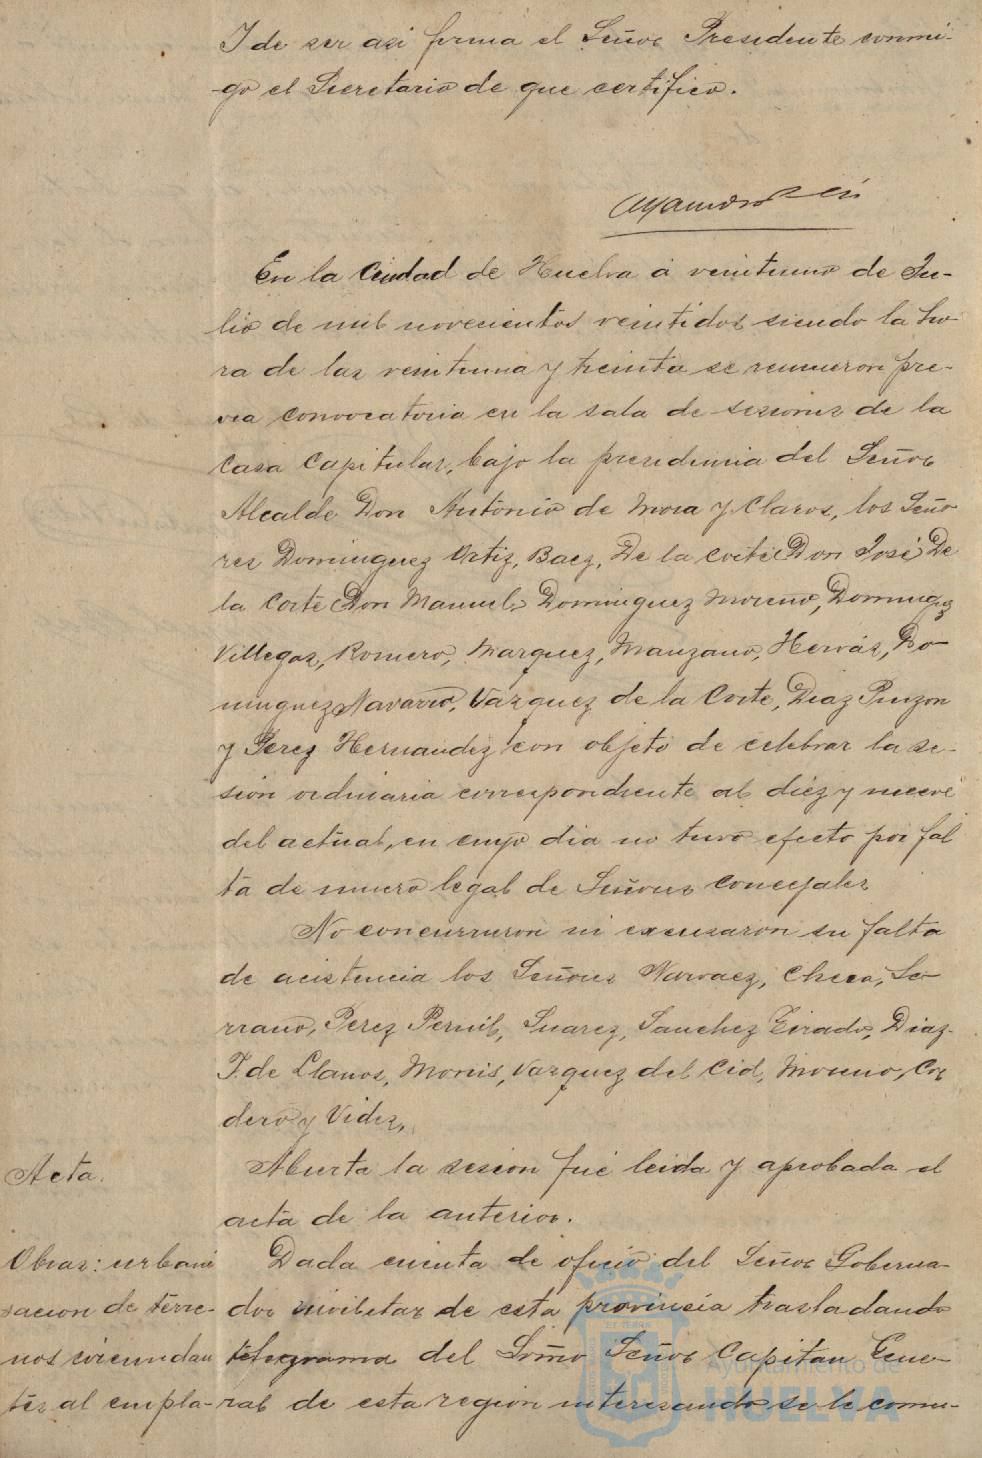 I de ser asi firma el Señor Presidente conmi-
-go el Secretario de que certifico.
En la Ciudad de Huelva á veintiuno de Ju-
lio de mil novecientos veintidos siendo la ho-
ra de las veintiuna y treinta se reunieron pre-
via convocatoria en la sala de sesiones de la
Casa Capitular, bajo la presidencia del Señor
Alcalde Don Antonio de Mora y Claros, los Seño
res Dominguez Ortiz, Baez, De la Corte Don José, De
la Corte Don Manuel, Dominguez Moreno, Doming.ez
Villegas, Romero, Marquez, Manzano, Hervás, Do-
minguez Navarro, Vázquez de la Corte, Diaz Pinzon
y Perez Hernandez con objeto de celebrar la se-
sion ordinaria correspondiente al diez y nueve
del actual, en cuyo dia no tuvo efecto por fal
ta de numero legal de Señores concejales
No concurrieron ni excusaron su falta
de acistencia los Señores Narvaez, Checa, Se-
rrano, Perez Pernil, Suarez, Sanchez Tirado, Diaz-
F. de Llanos, Monis, Vazquez del Cid, Moreno, Cor
dero y Vides,
Acta.
Abierta la sesion fué leida y aprobada el
acta de la anterior.
Obras: urbani
sacion de terre-
nos circundan
tes al empla-
Dada cuenta de oficio del Señor Goberna-
dor militar de esta provincia trasladando
telegrama del Excmo Señor Capitan Gene-
ral de esta region interesando se le comu-
Ayuntamiento de
HUELVA